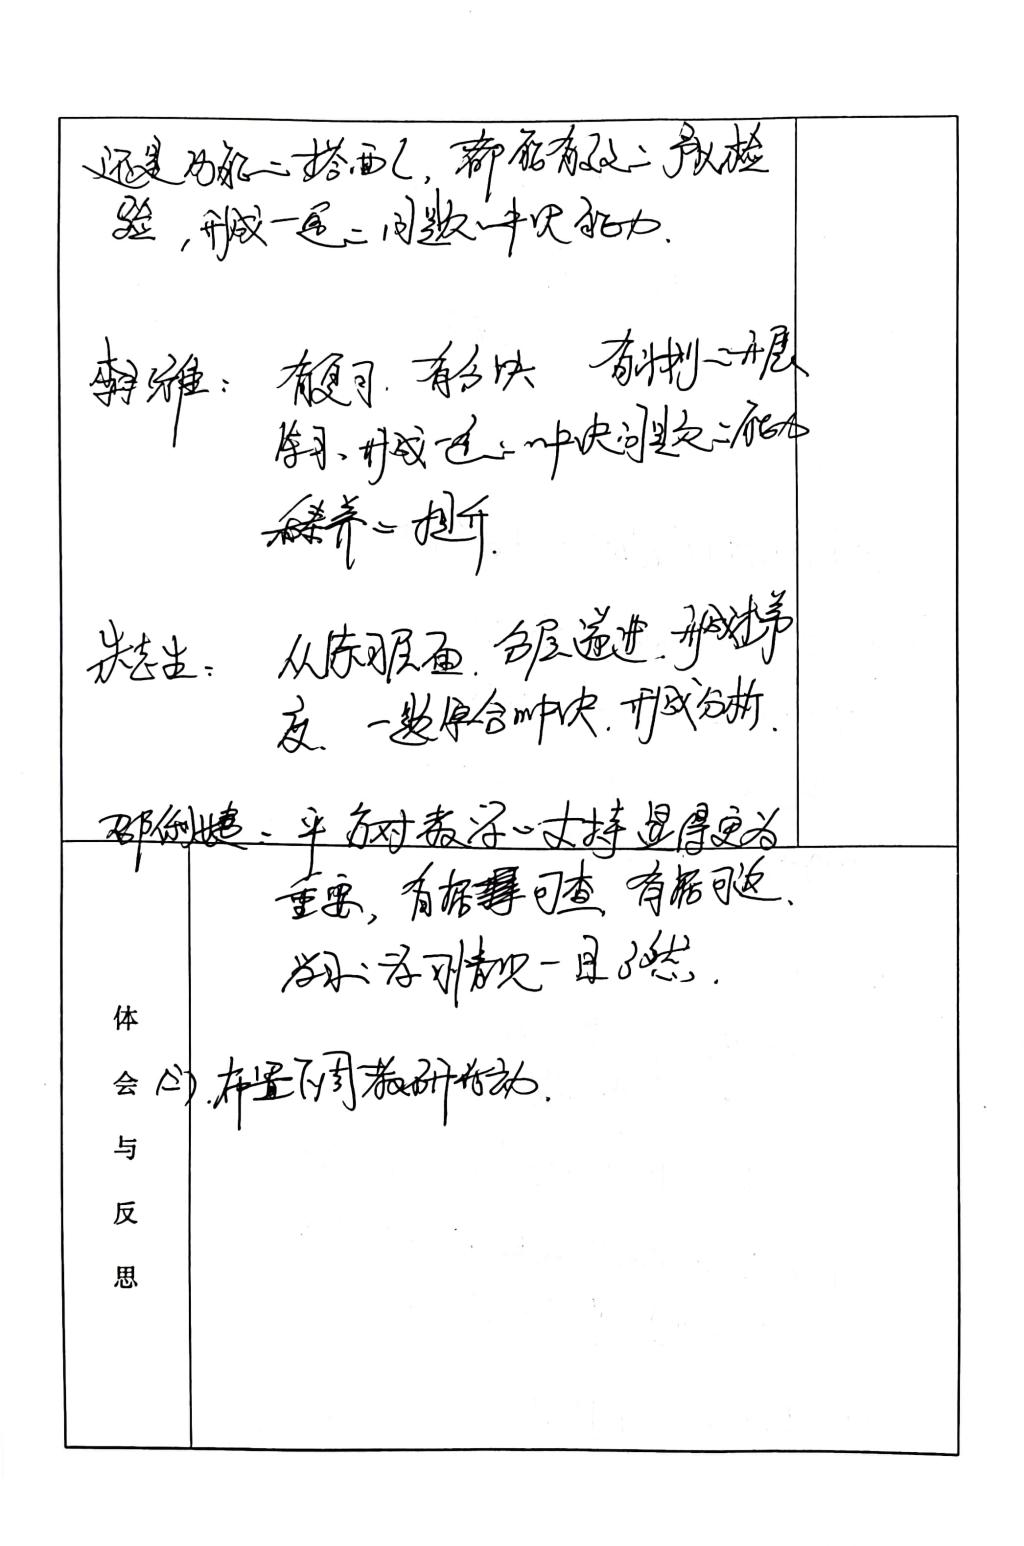 还是功能的搭西了,都能有效的予以检
验,形成一定的问题解决能力.
李雅: 有复习.有分块 有计划的开展
练习、形成一定的解决问题的能力
和素养的提升.
朱志生: 从练习层面.分层递进.形成梯
度. 一题综合解决.形成分析.
邵俐婕: 平台对教学的支持显得更为
重要,有据可查,有据可返.
学习的学习情况一目了然.
体会与反思
(二).布置下周教研活动.